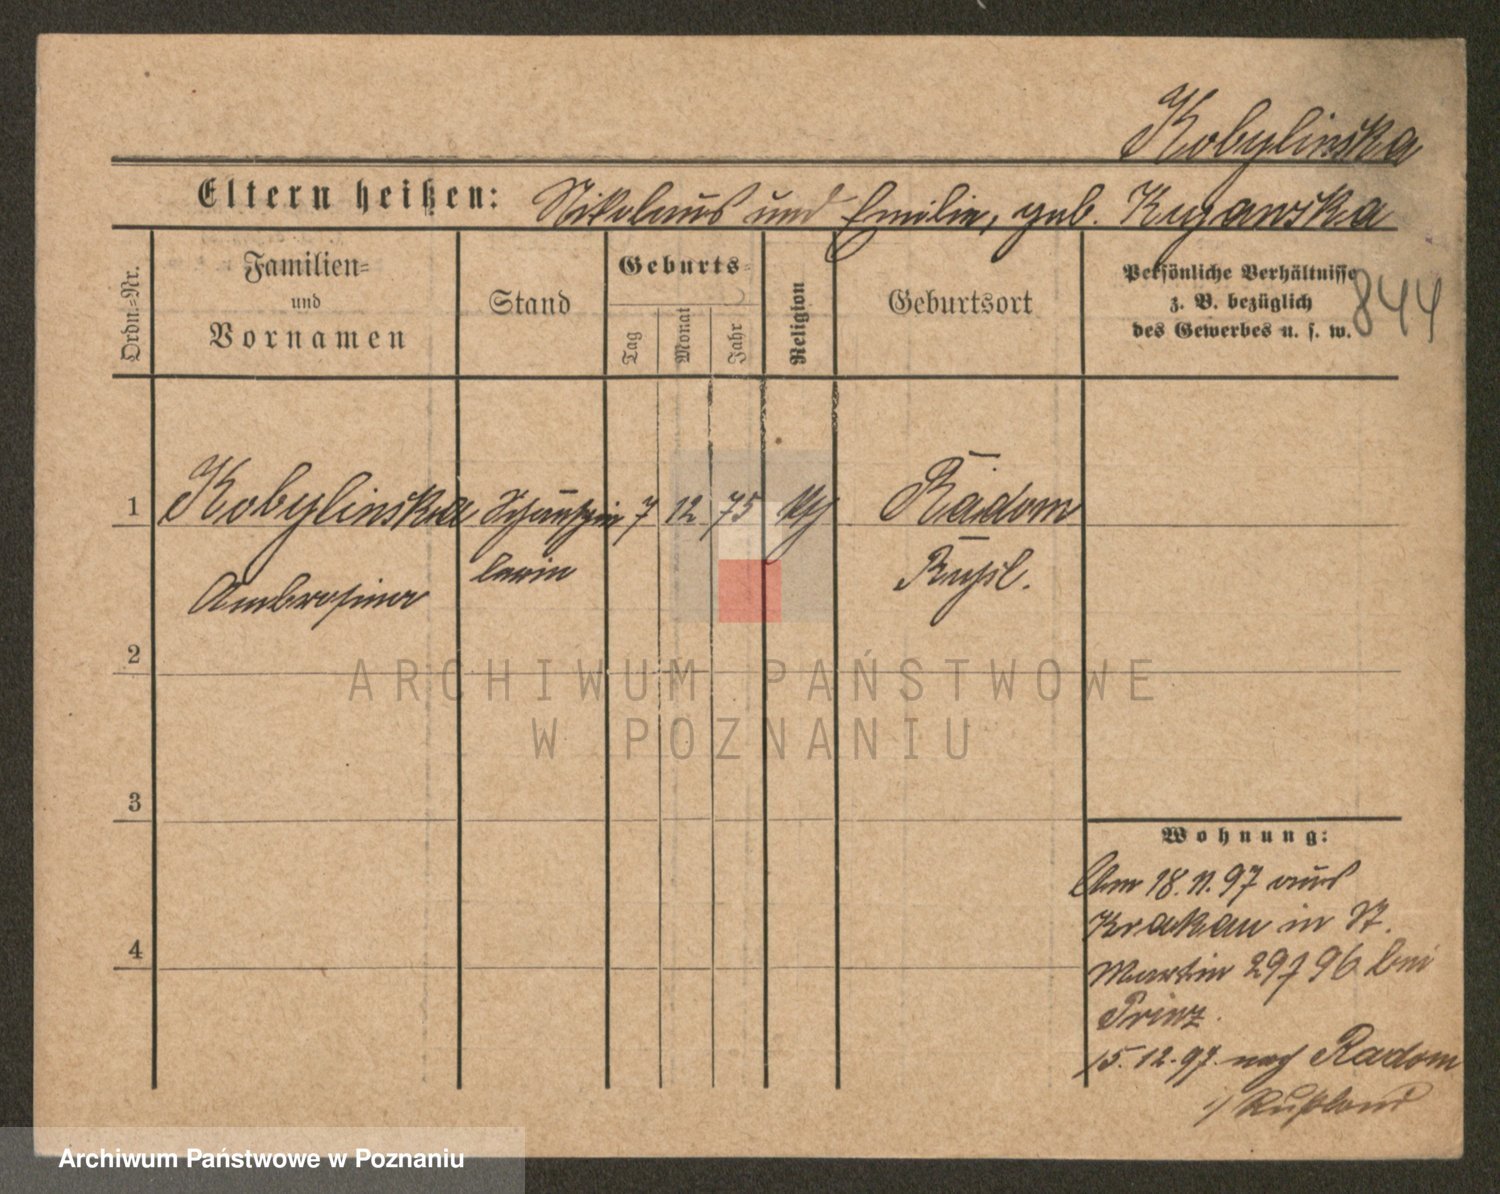 Kobylinska
Eltern heißen: Nikolaus und Emilie, geb. Kuzawska
Ordn.-Nr.
Familien-
und
Vornamen
Stand
Geburts-
Tag
Monat
Jahr
Religion
Geburtsort
Persönliche Verhältnisse
z. B. bezüglich
des Gewerbes u. s. w.
844
1 Kobylinska Schauspie 7 12 75 Radom
Ambrosina lerin Rußl.
2
3
4
ARCHIWUM PAŃSTWOWE
W POZNANIU
Wohnung:
Am 18. 11. 97 aus
Krakau in St.
Martin 29 96 bei
Prinz.
15. 12. 97 nach Radom
i/ Rußland
Archiwum Państwowe w Poznaniu